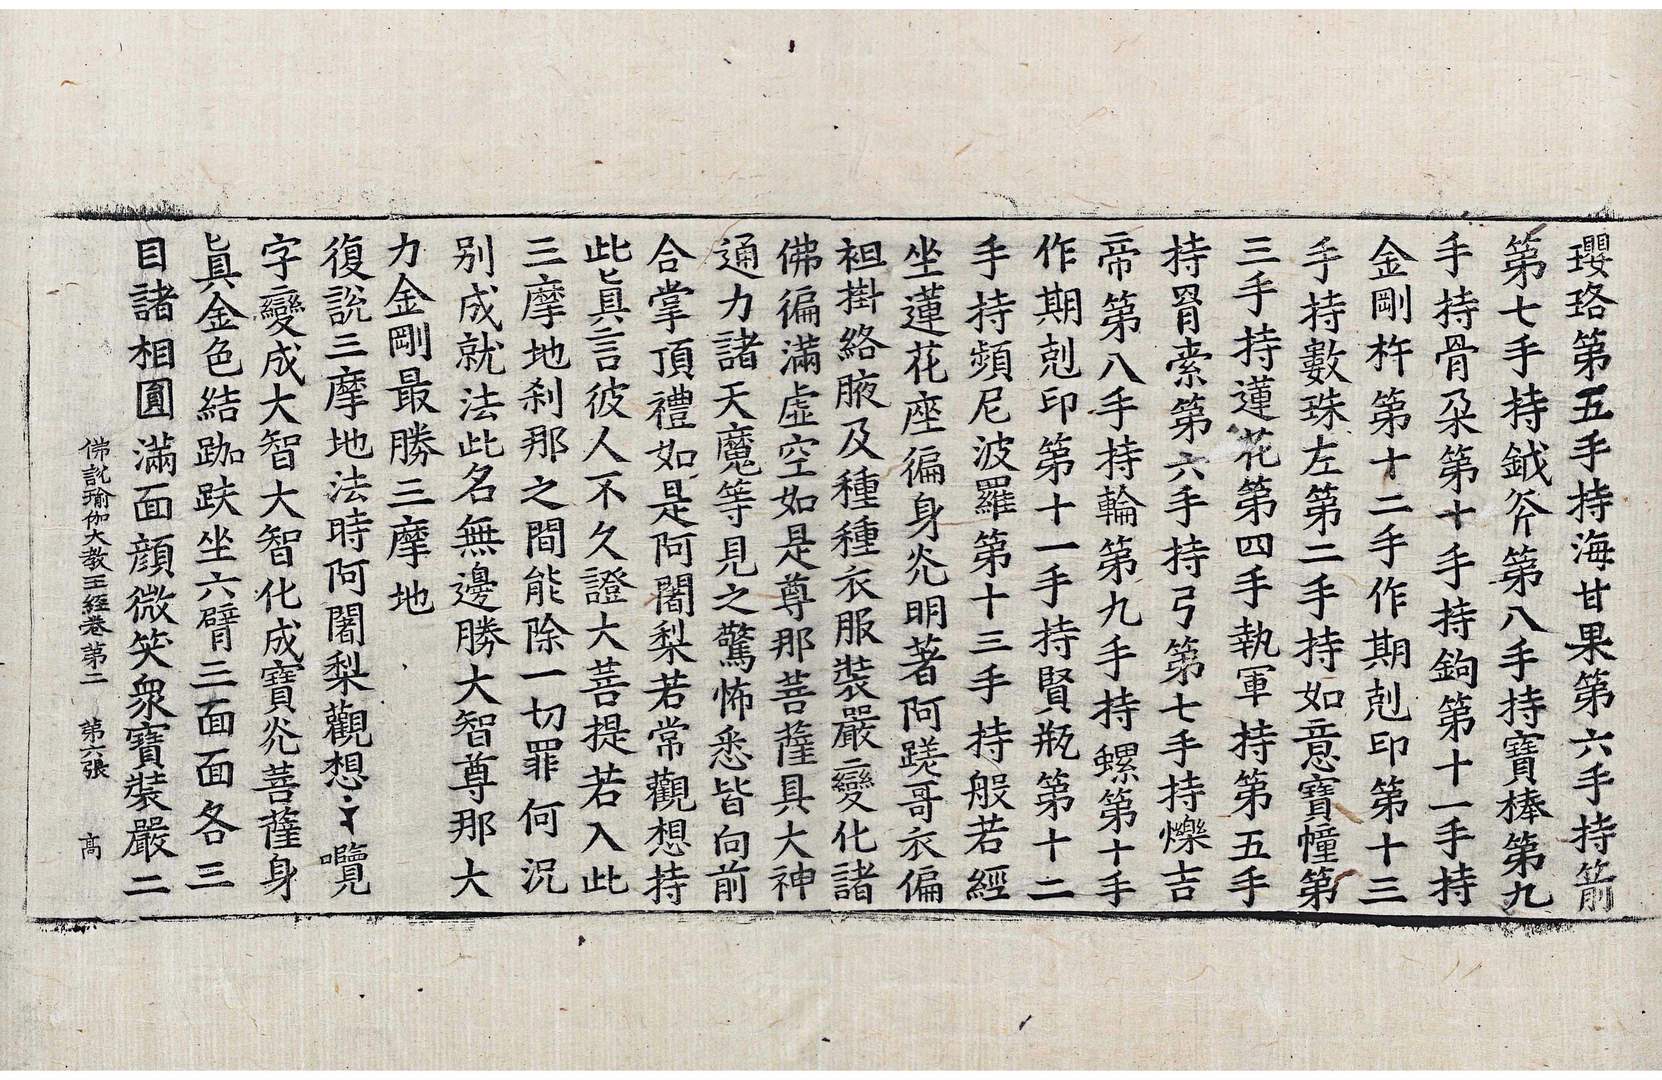 瓔珞第五手持海甘果第六手持箭
第七手持鉞斧第八手持寶棒第九
手持骨朶第十手持鉤第十一手持
金剛杵第十二手作期剋印第十三
手持數珠左第二手持如意寶幢第
三手持蓮花第四手執軍持第五手
持羂索第六手持弓第七手持爍吉
帝第八手持輪第九手持螺第十手
作期剋印第十一手持賢瓶第十二
手持頻尼波羅第十三手持般若經
坐蓮花座徧身光明著阿蹉哥衣偏
袒掛絡腋及種種衣服裝嚴變化諸
佛徧滿虛空如是尊那菩薩具大神
通力諸天魔等見之驚怖悉皆向前
合掌頂禮如是阿闍梨若常觀想持
此眞言彼人不久證大菩提若入此
三摩地刹那之間能除一切罪何况
别成就法此名無邊勝大智尊那大
力金剛最勝三摩地
復說三摩地法時阿闍梨觀想嚂
字變成大智大智化成寶光菩薩身
眞金色結跏趺坐六臂三面面各三
目諸相圓滿面顔微笑衆寶裝嚴二
佛說瑜伽大教王經卷第二 第六張 髙